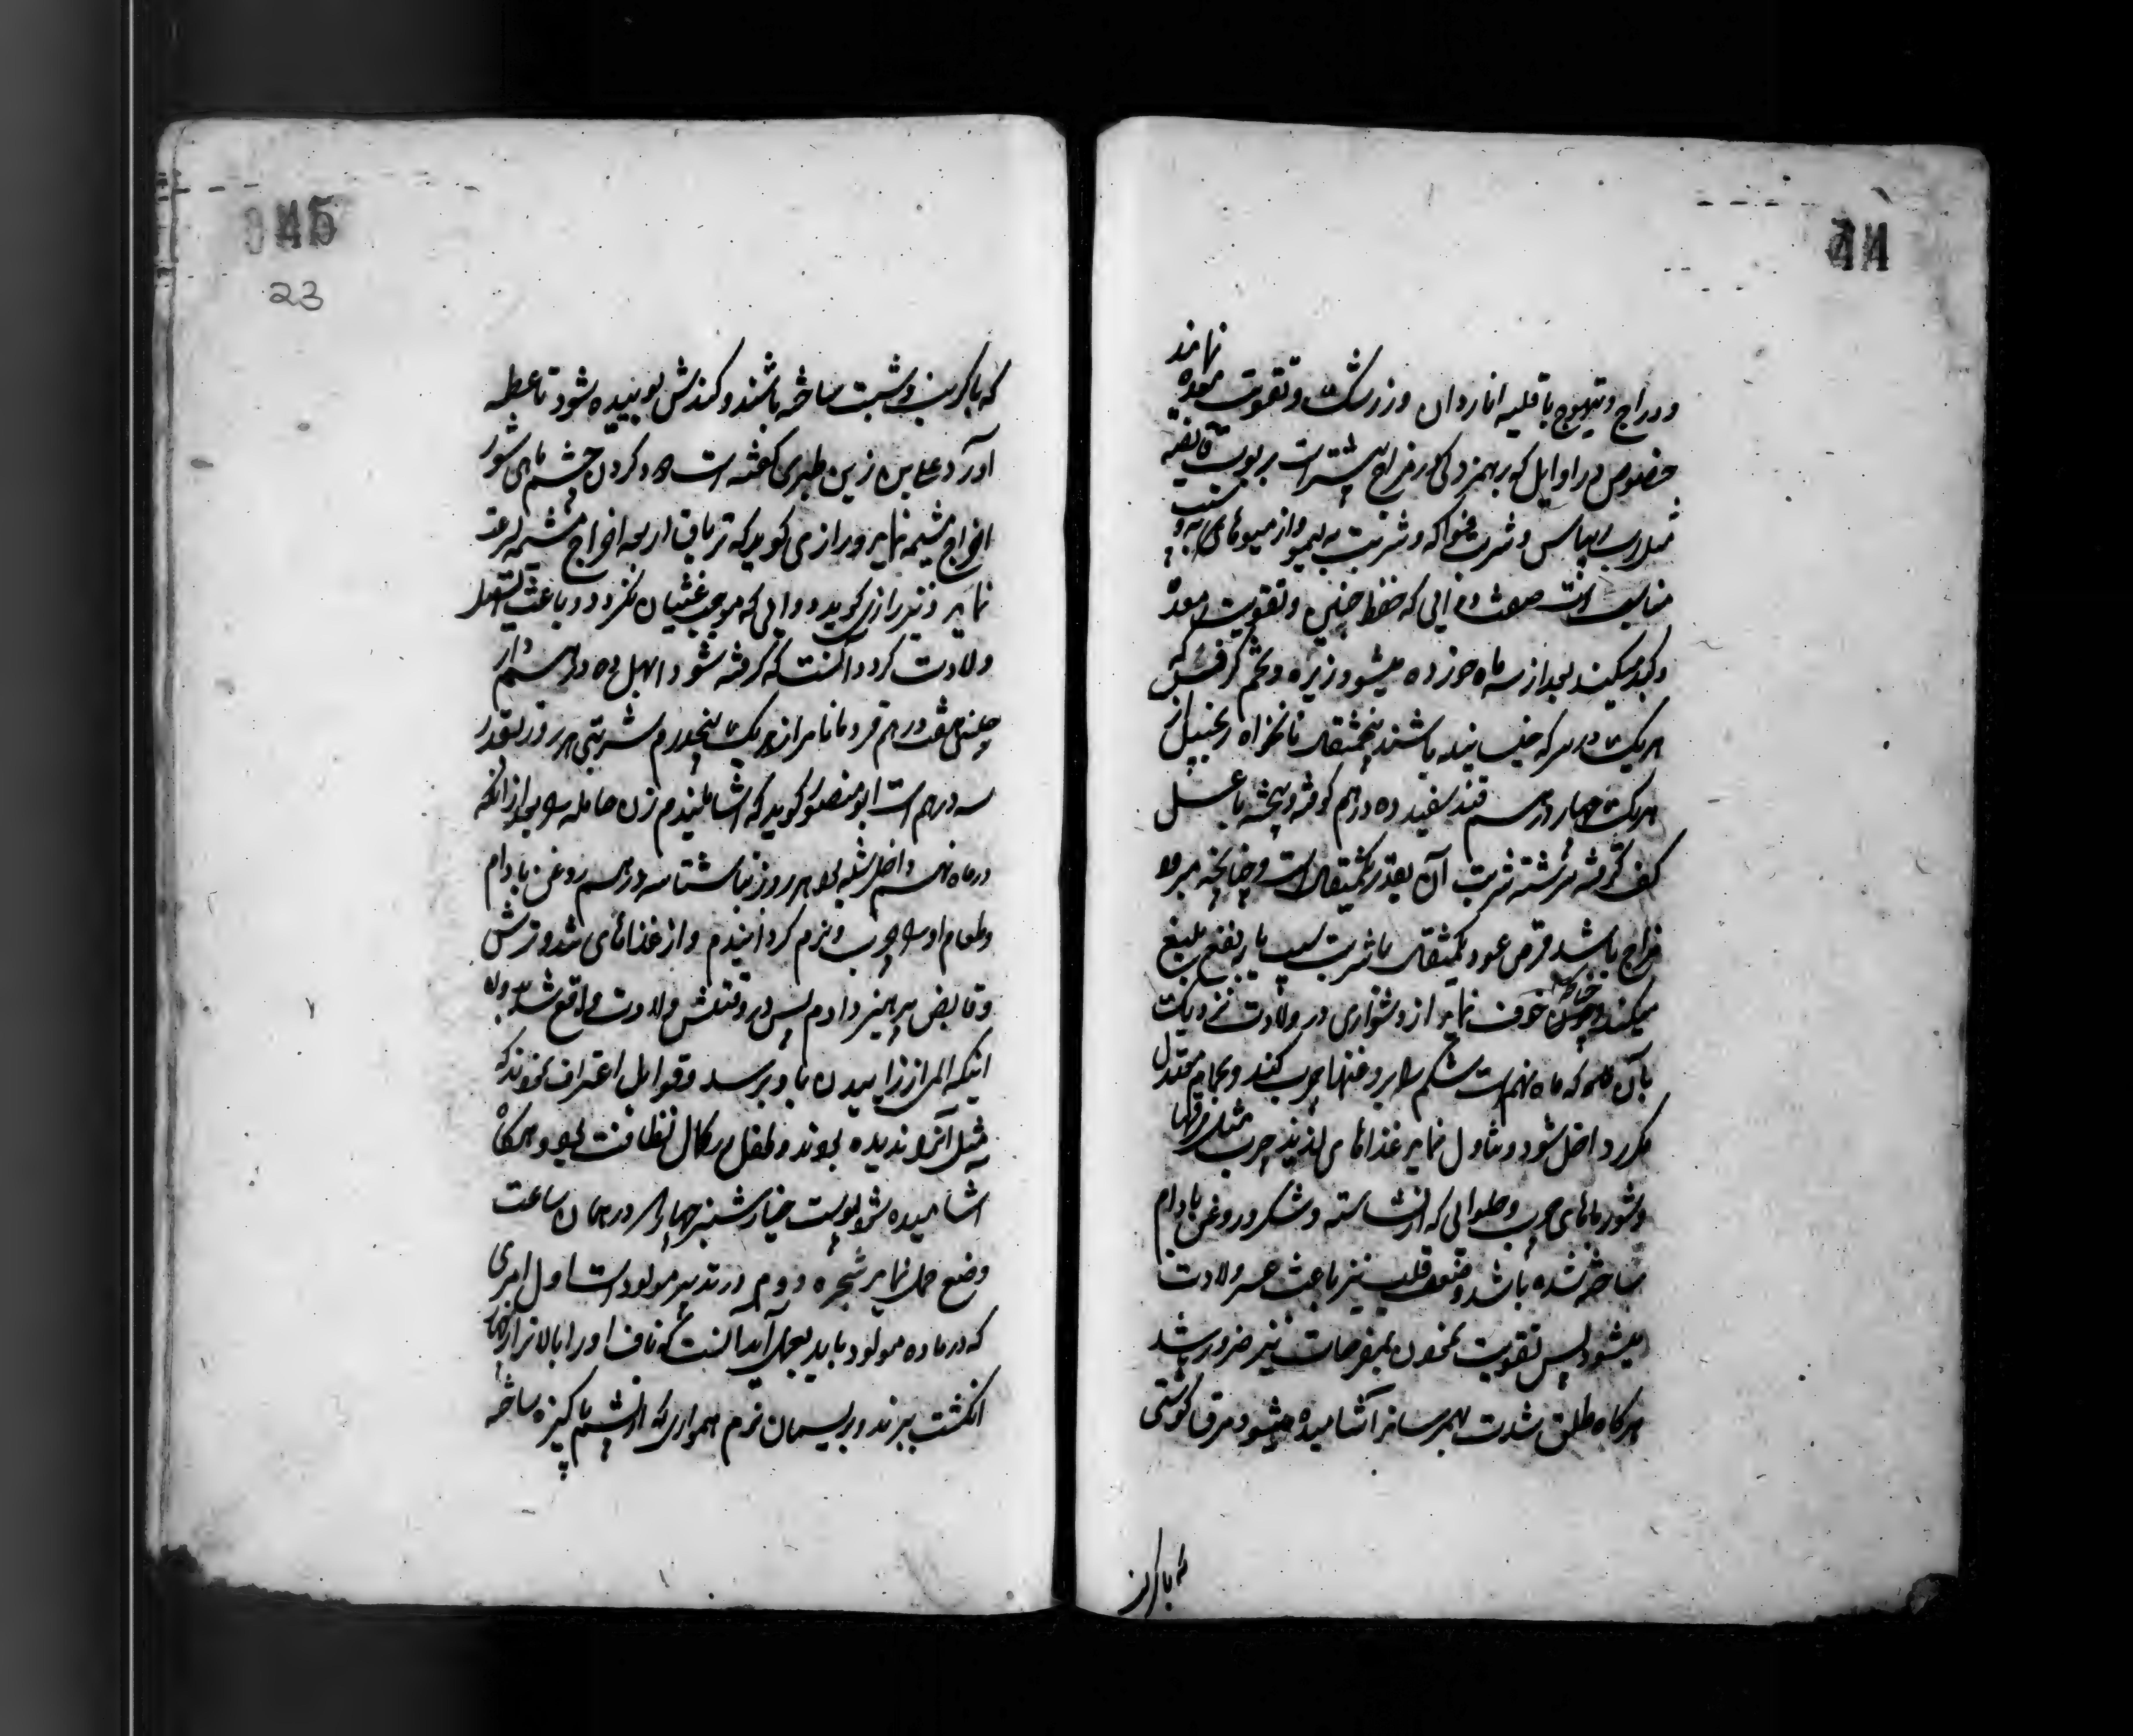 44
نمایند
و دراج و تیهوج با قلیه اناردان و زرشک و تقویت معده
خصوص در اوایل که برهمزدگی در مزاج بیشتر است بربوب قابضه
مثل رب ریباس و شربت فواکه و شربت به لیمو و از میوهای به و سیب
مناسب است صفت دوائی که حفظ جنین و تقویت معده
و کبد میکند بعد از سه ماه خورده میشود زیره و تخم کرفس که
هر یک در سرکه خیسانیده باشند پنجمثقال نانخواه زنجبیل از
هر یک چهار درهم قند سفید ده درهم کوفته و بیخته با عسل
کف گرفته سرشته شربت آن بقدر یکمثقال است و چنانچه مبرود
مزاج باشد قرص عود یکمثقال با شربت سیب یا به نفع بلیغ
میکند و چون حامله خوف نماید از دشواری در ولادت نزدیک
بآن که ماه نهم است شکم را بروغنها چرب کند و بحمام معتدل
مکرر داخل شود و تناول نماید غذاهای لذیذ چرب مثل مرقها
و شورباهای چرب و حلوائی که از نشاسته و شکر و روغن بادام
ساخته شده باشد و ضعف قلب نیز باعث عسر ولادت
میشود پس تقویت نمودن بمفرحات نیز ضرور باشد
هرگاه طلق شدت بهم رساند آشامیده میشود مرق گوشتی
که با کرنب
045
23
که با کرنب و شبت ساخته باشند و کندش بوئیده شود تا عطسه
آورد و علی بن زین طبری گفته است دود کردن چشم ماهی شور
اخراج مشیمه نماید و رازی گوید که تریاق اربعه اخراج مشیمه بسرعت
نماید و نیز رازی گوید دوائی که موجب غثیان نگردد و باعث تسهیل
ولادت گردد آنست که گرفته شود ابهل ده درهم دار
چینی هفت درهم قردمانا مر از هر یک پنجدرم شربتی هر روز بقدر
سه درهم است ابو منصور گوید که آشامانیدم زن حامله را بعد از آنکه
در ماه نهم داخل شده بود هر روز ناشتا سه درهم روغن بادام
و طعام او را چرب و نرم گردانیدم و از غذاهای تند و ترش
و قابض پرهیز دادم پس در وقتش ولادت واقع شد بدون
اینکه الم از زائیدن باو برسد و قوابل اعتراف نمودند که
مثل آنرا ندیده بودند و طفل در کمال نظافت بود و هرگاه
آشامیده شود پوست خیارشنبر چهار درهم در همان ساعت
وضع حمل نماید شجره دوم در تدبیر مولود است اول امری
که در ماده مولود باید بعمل آید آنست که ناف او را بالاتر از چهار
انگشت ببرند و بریسمان نرم همواری که از پشم پاکیزه ساخته